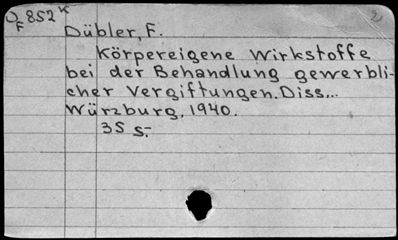 O 852 K
F
Dübler, F.
Körpereigene Wirkstoffe
bei der Behandlung gewerbli-
cher Vergiftungen. Diss...
Würzburg, 1940.
35 S.-